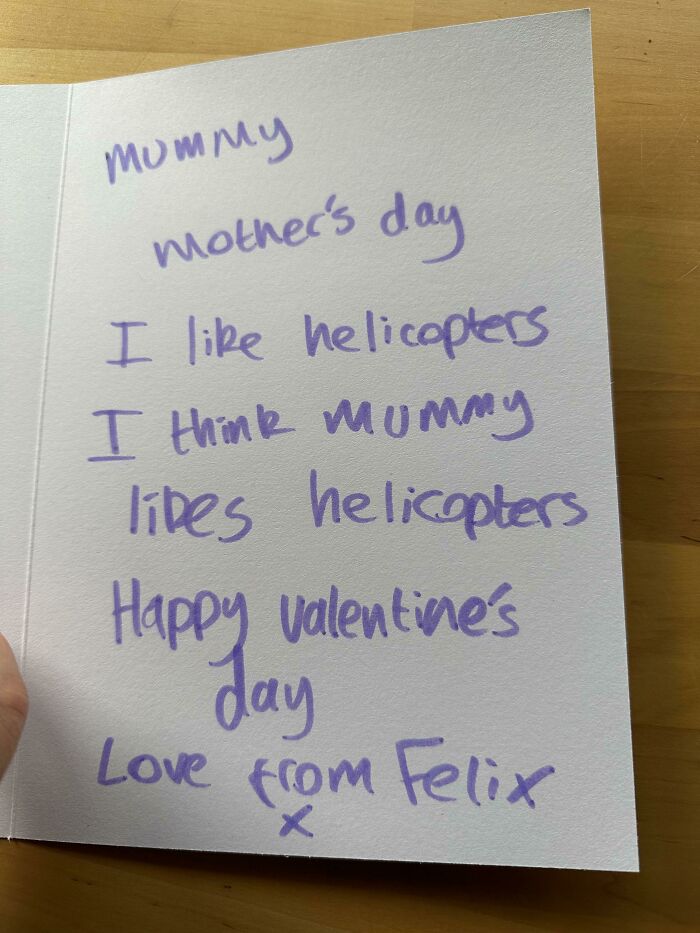 Mummy
mother's day
I like helicopters
I think mummy
likes helicopters
Happy valentine's
day
Love from Felix
x